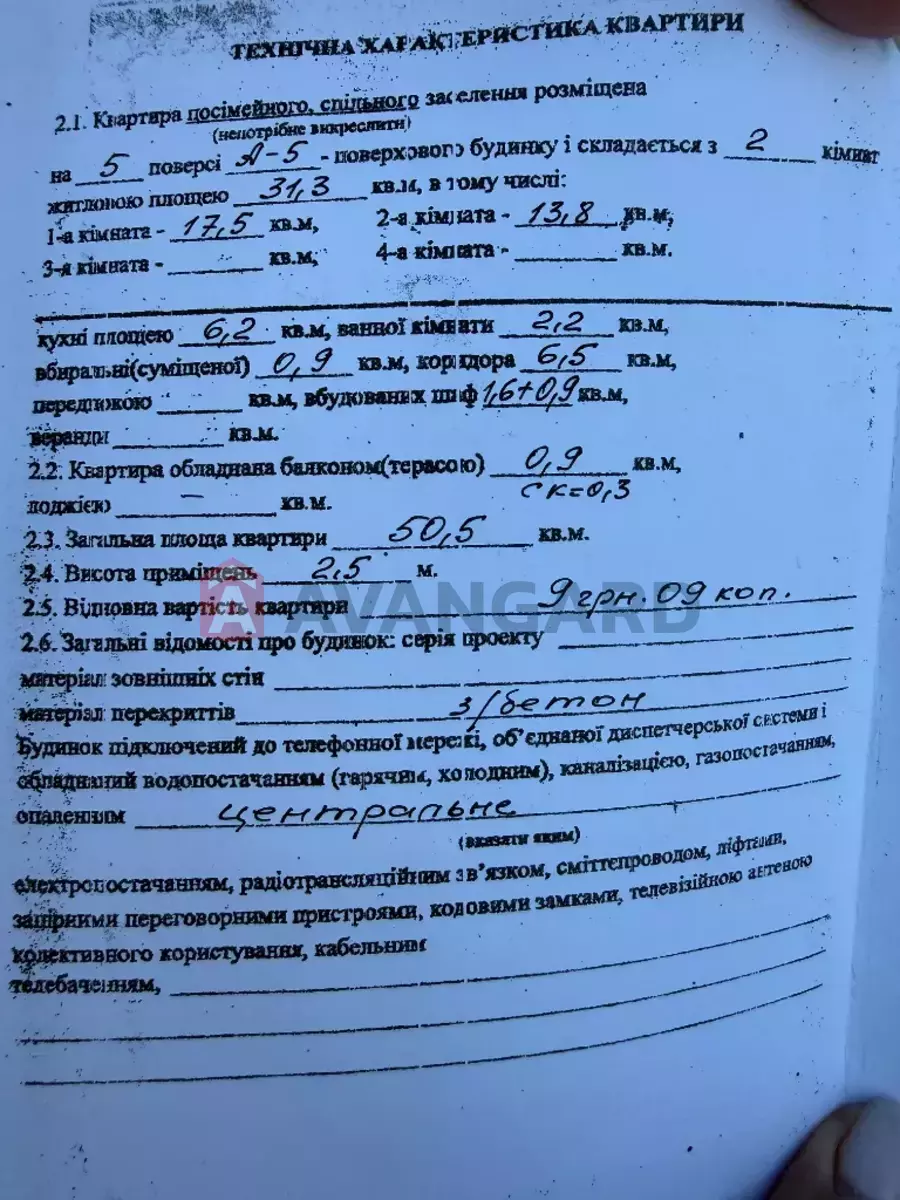 ТЕХНІЧНА ХАРАКТЕРИСТИКА КВАРТИРИ
2.1. Квартира посімейного, спільного заселення розміщена
(непотрібне викреслити)
на 5 поверсі А-5 - поверхового будинку і складається з 2 кімнат
житловою площею 31,3 кв.м, в тому числі:
1-а кімната - 17,5 кв.м, 2-а кімната - 13,8 кв.м,
3-я кімната - кв.м, 4-а кімната - кв.м.
кухні площею 6,2 кв.м, ванної кімнати 2,2 кв.м,
вбиральні(суміщеної) 0,9 кв.м, коридора 6,5 кв.м,
передпокою кв.м, вбудованих шаф 1,6+0,9 кв.м,
веранди кв.м.
2.2. Квартира обладнана балконом(терасою) 0,9 кв.м,
с к=0,3
лоджією – кв.м.
2.3. Загальна площа квартири 50,5 кв.м.
2.4. Висота приміщень 2,5 м.
2.5. Відновна вартість квартири 9 грн. 09 коп.
AVANGARD
2.6. Загальні відомості про будинок: серія проекту
матеріал зовнішніх стін
матеріал перекриттів з/бетон
Будинок підключений до телефонної мережі, об'єднаної диспетчерської системи і
обладнаний водопостачанням (гарячим, холодним), каналізацією, газопостачанням,
опаленням центральне
(вказати яким)
електропостачанням, радіотрансляційним зв'язком, сміттєпроводом, ліфтами,
замірними переговорними пристроями, кодовими замками, телевізійною антеною
колективного користування, кабельним
телебаченням,